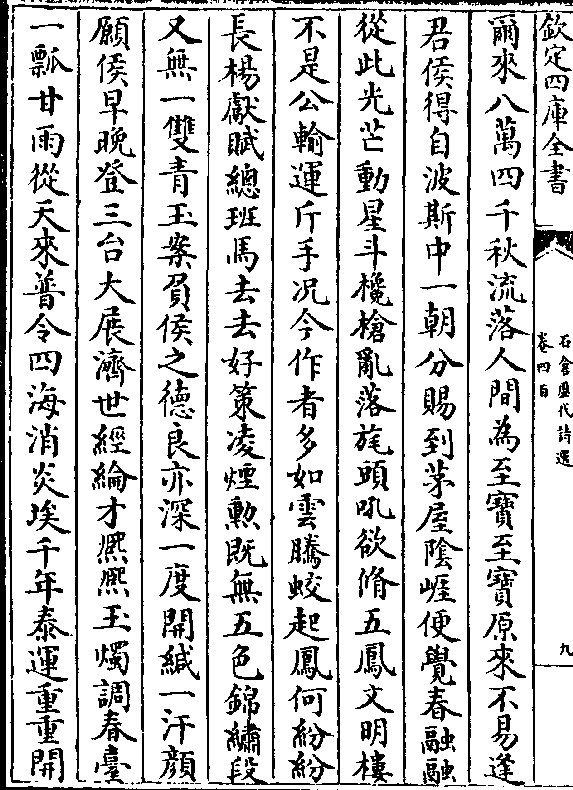 欽定四庫全書
石倉歷代詩選
卷四百
九
爾來八萬四千秋流落人間為至寶至寶原來不易逢
君侯得自波斯中一朝分賜到茅屋陰崖便覺春融融
從此光芒動星斗欃槍亂落旄頭吼欲脩五鳳文明樓
不是公輸運斤手况今作者多如雲騰蛟起鳳何紛紛
長楊獻賦總班馬去去好策凌煙勲既無五色錦繡段
又無一雙青玉案負侯之德良亦深一度開緘一汗顔
願侯早晚登三台大展濟世經綸才熈熈玉燭調春臺
一瓢甘雨從天來普令四海消炎埃千年泰運重重開